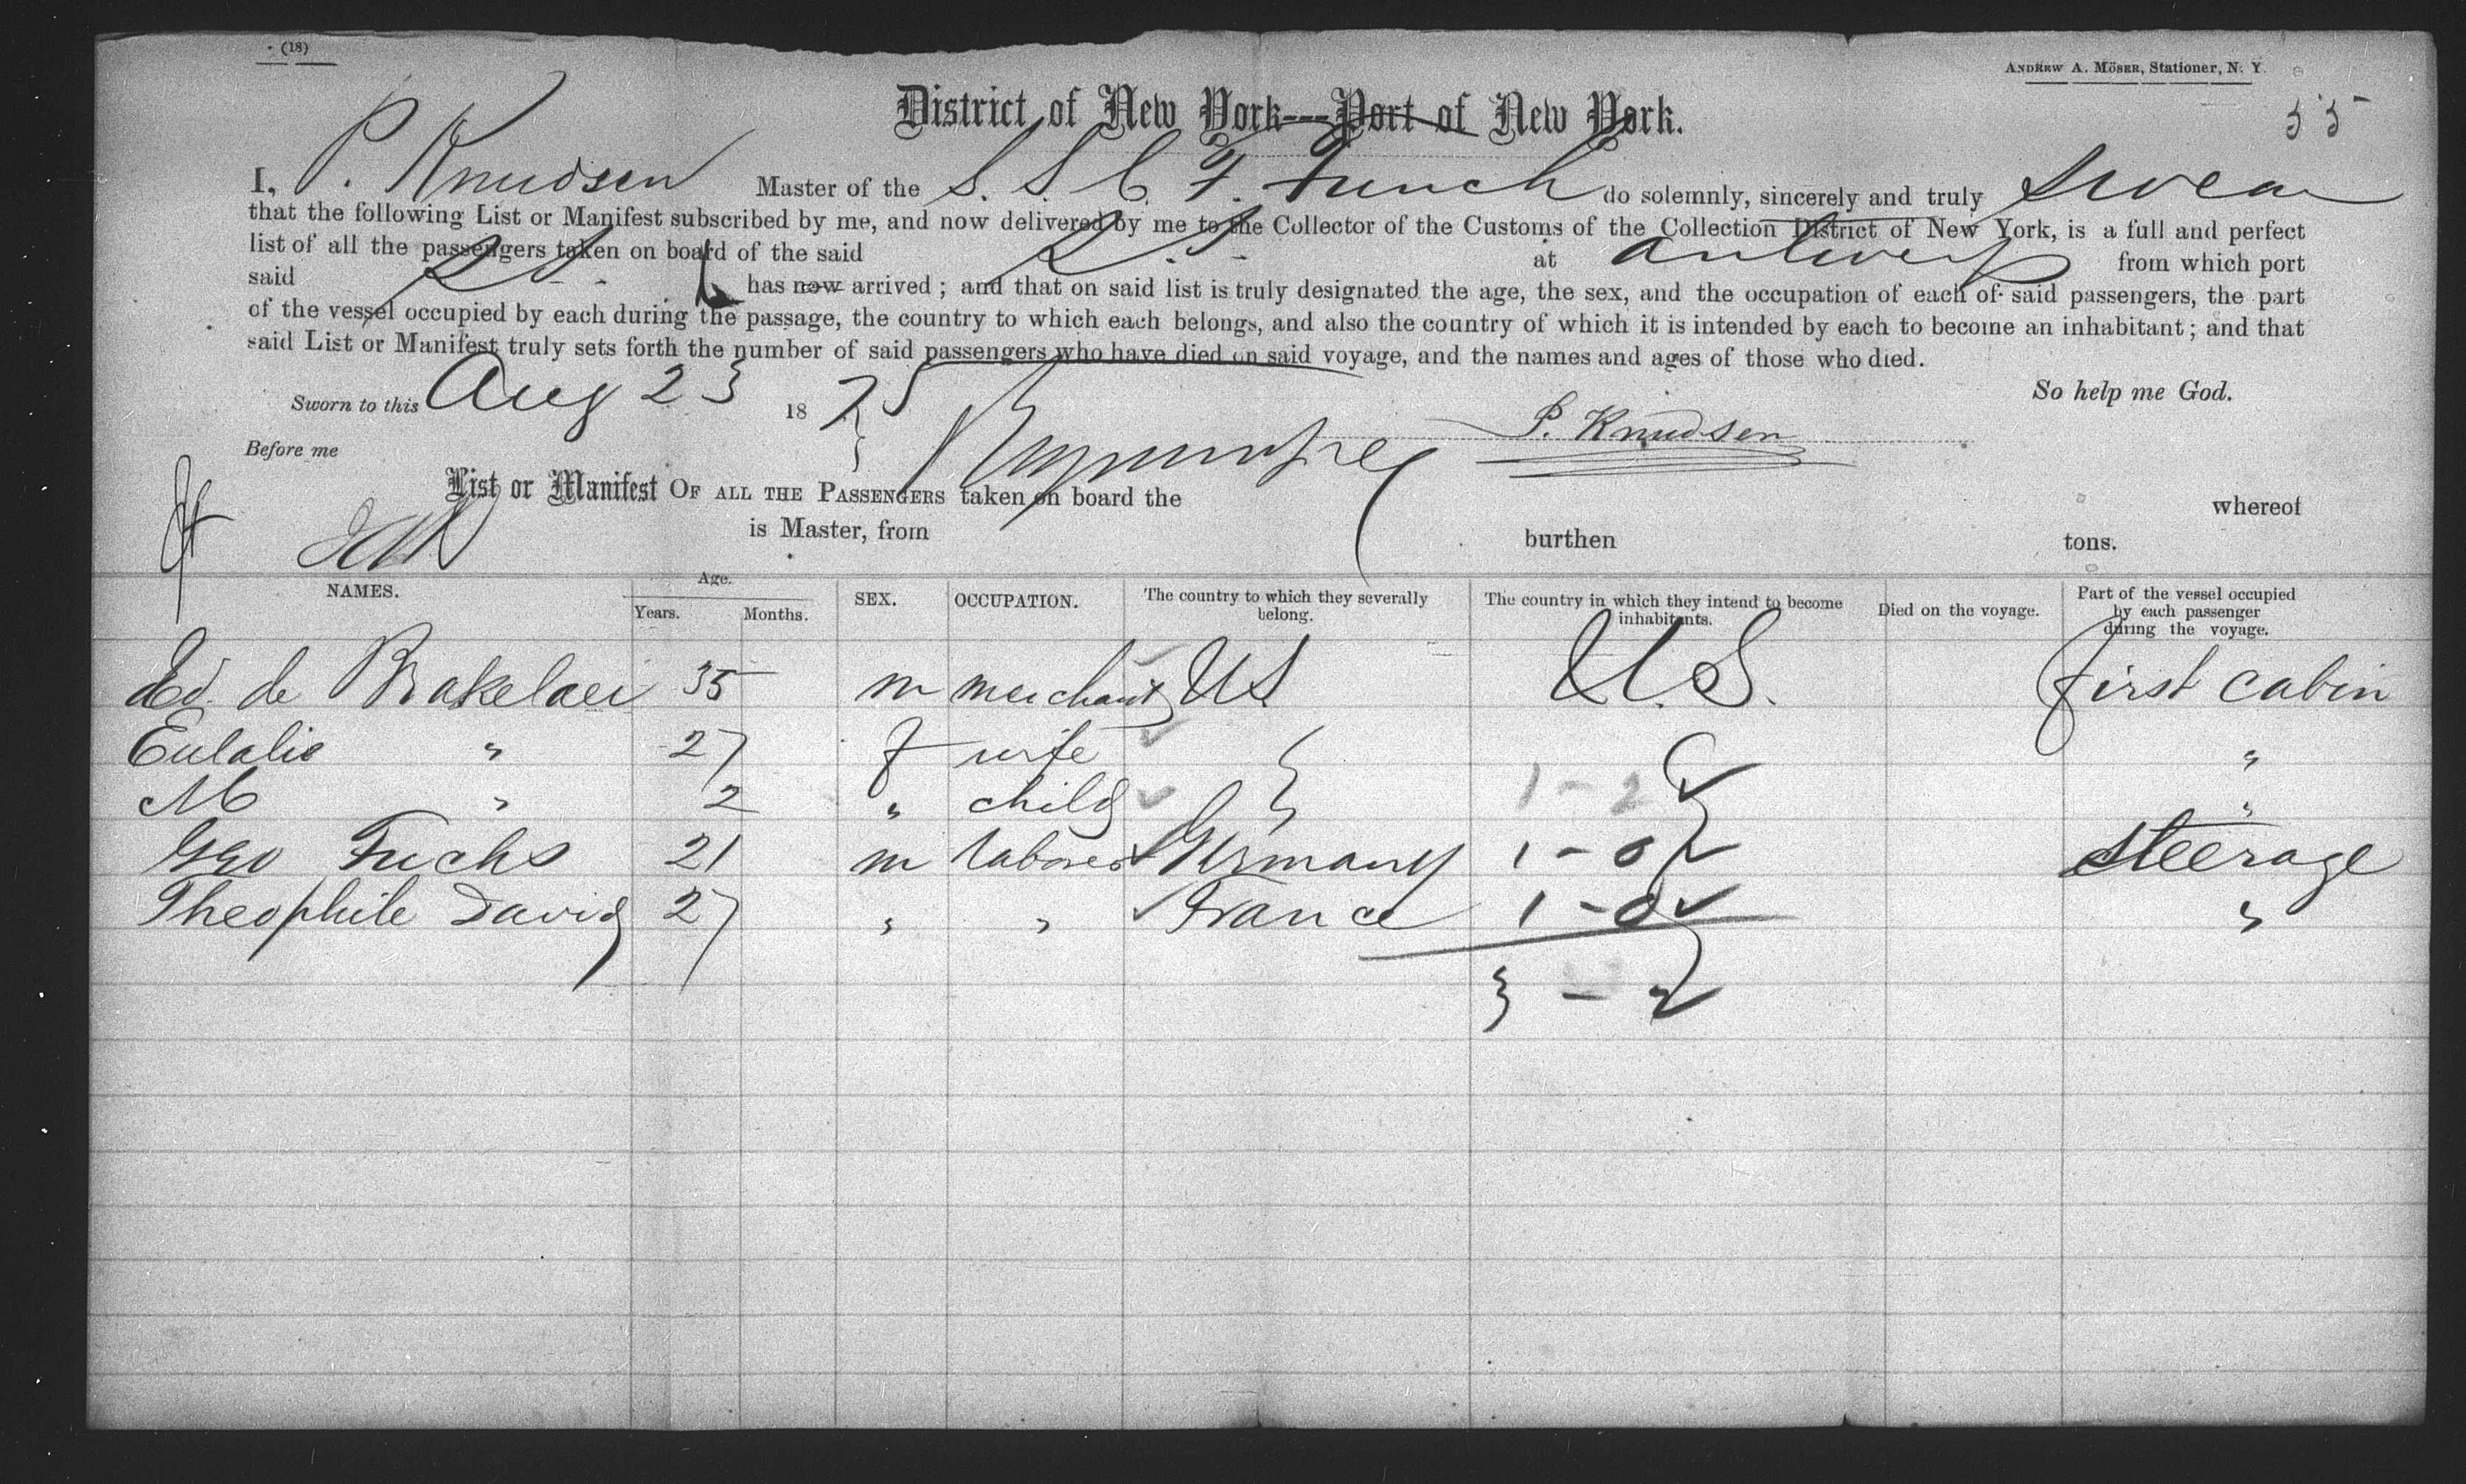 (18)
ANDREW A. MÖSER, Stationer, N. Y.
55
District of New York---Port of New York.
I, P. Knudsen Master of the S. S. C. F. Funch do solemnly, sincerely and truly swear
that the following List or Manifest subscribed by me, and now delivered by me to the Collector of the Customs of the Collection District of New York, is a full and perfect
list of all the passengers taken on board of the said S. S. at Antwerp from which port
said S. S. has now arrived ; and that on said list is truly designated the age, the sex, and the occupation of each of said passengers, the part
of the vessel occupied by each during the passage, the country to which each belongs, and also the country of which it is intended by each to become an inhabitant ; and that
said List or Manifest truly sets forth the number of said passengers who have died on said voyage, and the names and ages of those who died.
So help me God.
Sworn to this Aug 23 1875
P. Knudsen
Before me
List or Manifest OF ALL THE PASSENGERS taken on board the whereof
is Master, from burthen tons.
NAMES. Age. Years. Months. SEX. OCCUPATION. The country to which they severally belong. The country in which they intend to become inhabitants. Died on the voyage. Part of the vessel occupied by each passenger during the voyage.
Ed. de Brakelaer 35 m merchant US U.S. first cabin
Eulalie " 27 f wife "
M " 2 " child 1 - 2 "
Geo Fuchs 21 m laborer Germany 1 - 0 steerage
Theophile David 27 " " France 1 - 0 "
3 - 2